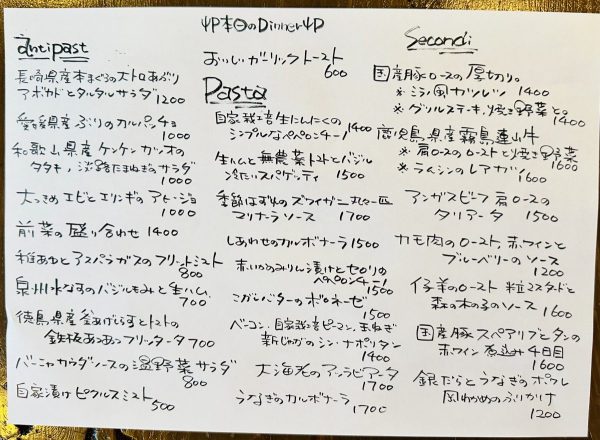 本日のDinner
antipast
長崎県産本まぐろの大トロあぶり
アボカドとタルタルサラダ 1200
愛媛県産ぶりのカルパッチョ
1000
和歌山県産ケンケンカツオの
タタキ、淡路たまねぎのサラダ
1000
大っきめエビとエリンギのアヒージョ
1000
前菜の盛り合わせ 1400
稚あゆとアスパラガスのフリットミスト
800
泉州水なすのバジルもみと生ハム
700
徳島県産釜あげしらすとトマトの
鉄板あつあつフリッタータ 700
バーニャカウダソースの温野菜サラダ
800
自家漬けピクルスミスト
500
おいしいガーリックトースト
600
Pasta
自家栽培生にんにくの
シンプルなペペロンチーノ 1400
生ハムと無農薬トマトとバジル
冷たいスパゲッティ 1500
季節はずれのズワイガニ丸ッ一匹
マリナーラソース 1700
しあわせのカルボナーラ 1500
赤いかのみりん漬けとセロリの
ペペロンチーノ
1500
こがしバターのボロネーゼ
1500
ベーコン、自家栽培ピーマン、玉ねぎ
新じゃがのシン・ナポリタン
1400
大海老のアラビアータ
1700
うなぎのカルボナーラ 1700
Secondi
国産豚ロースの厚切り。
※ミラノ風カツレツ 1400
※グリルステーキ、焼き野菜と。
1400
鹿児島県産霧島連山牛
※肩ロースのローストと焼き野菜
1600
※ラムシンのレアカツ
1600
アンガスビーフ肩ロースの
タリアータ 1500
カモ肉のロースト、赤ワインと
ブルーベリーのソース
1200
仔羊のロースト 粒マスタードと
森の木の子のソース 1600
国産豚スペアリブとタンの
赤ワイン煮込み4日目
1600
銀だらとうなぎのポワレ
岡わかめのふりかけ
1200